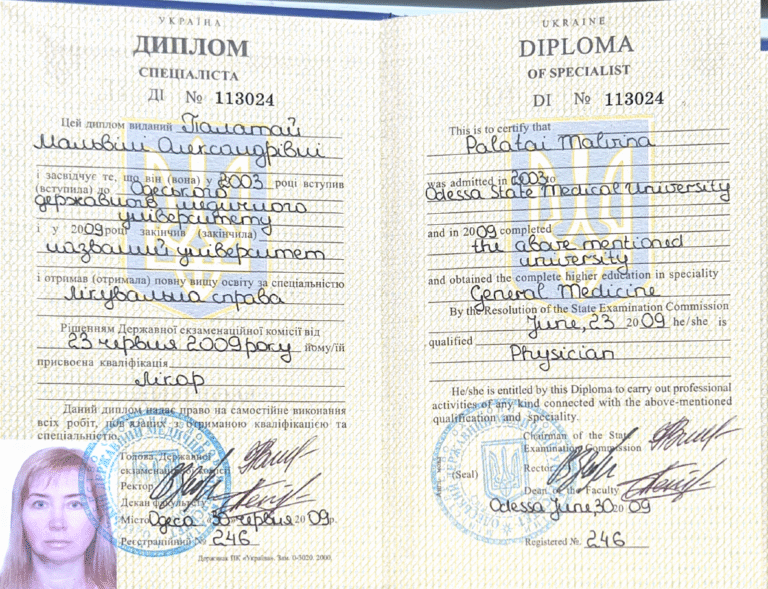 УКРАЇНА
ДИПЛОМ
СПЕЦІАЛІСТА
ДІ № 113024
Цей диплом виданий Палатай
Мальвіні Олександрівні
і засвідчує те, що він (вона) у 2003 році вступив
(вступила) до Одеського
державного медичного
університету
і у 2009 році закінчив (закінчила)
названий університет
і отримав (отримала) повну вищу освіту за спеціальністю
лікувальна справа
Рішенням Державної екзаменаційної комісії від
23 червня 2009 року йому/їй
присвоєна кваліфікація
лікар
Даний диплом надає право на самостійне виконання
всіх робіт, пов'язаних з отриманою кваліфікацією та
спеціальністю.
Голова Державної
екзаменаційної комісії
Ректор
Декан факультету
Місто Одеса «30» червня 2009 р.
Реєстраційний № 246
Державна ПК «Україна». Зам. 0-3020. 2000.
UKRAINE
DIPLOMA
OF SPECIALIST
DI № 113024
This is to certify that
Palatai Malvina
was admitted in 2003 to
Odessa State Medical University
and in 2009 completed
the above mentioned
university
and obtained the complete higher education in speciality
General Medicine
By the Resolution of the State Examination Commission
June, 23 2009 he/she is
qualified
Physician
He/she is entitled by this Diploma to carry out professional
activities of any kind connected with the above-mentioned
qualification and speciality.
Chairman of the State
Examination Commission
(Seal) Rector
Dean of the Faculty
Odessa June 30 2009
Registered №. 246